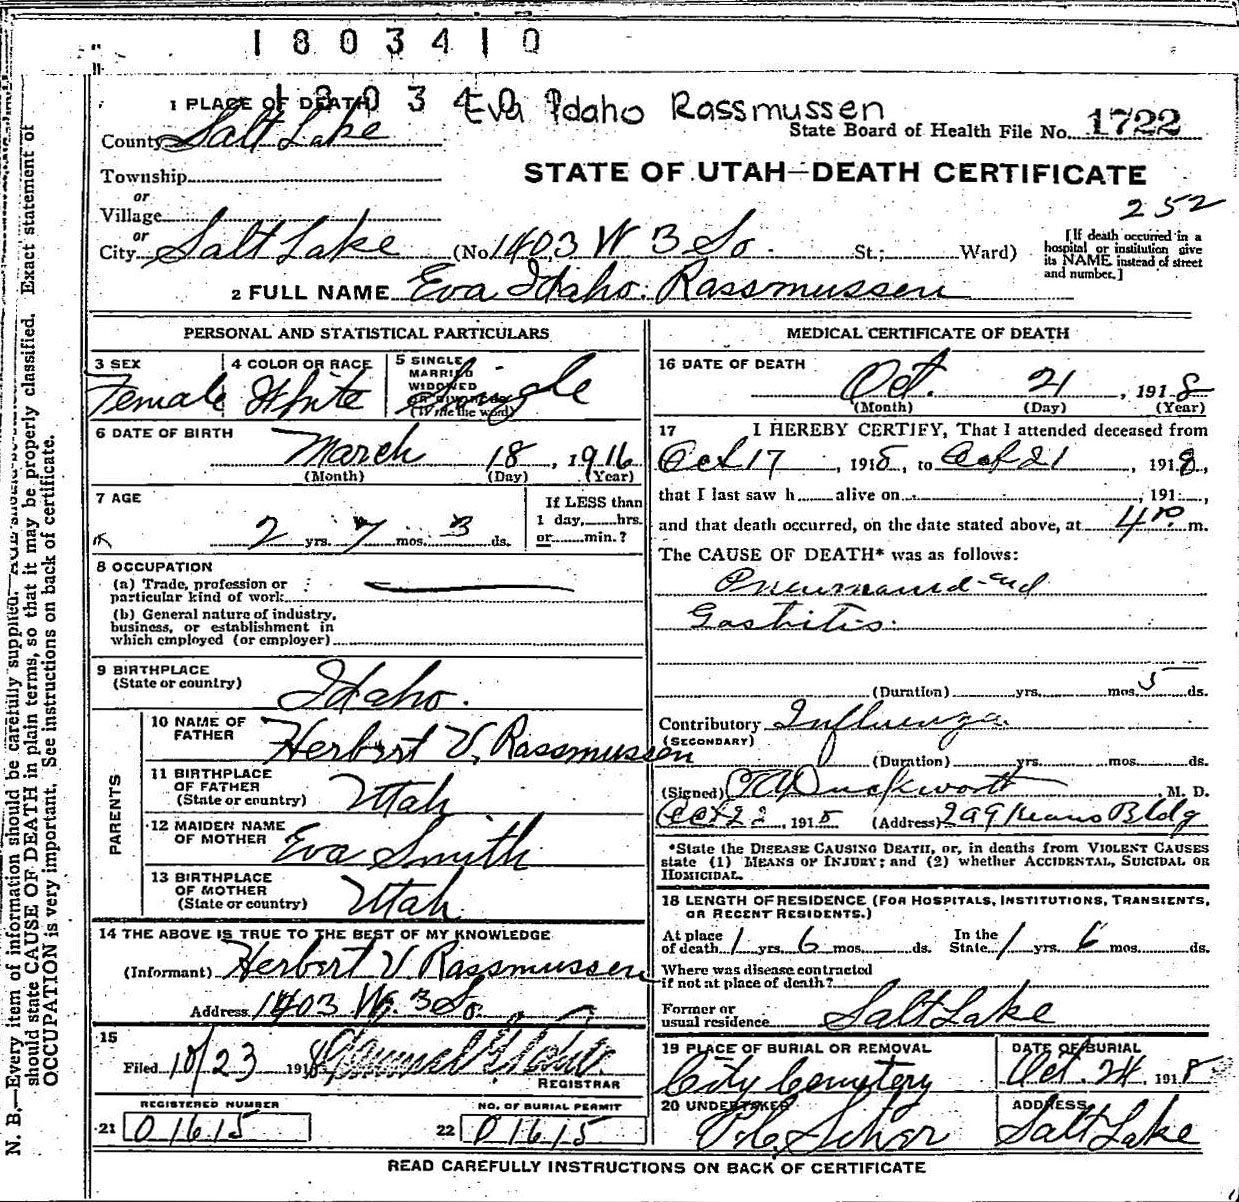 1803410
1 PLACE OF DEATH Eva Idaho Rassmussen
County Salt Lake State Board of Health File No. 1722
Township
or
Village
STATE OF UTAH—DEATH CERTIFICATE
252
or
City Salt Lake (No. 1403 W 3 So. St.; Ward)
[If death occurred in a hospital or institution give its NAME instead of street and number.]
2 FULL NAME Eva Idaho Rassmussen
PERSONAL AND STATISTICAL PARTICULARS
3 SEX Female
4 COLOR OR RACE White
5 SINGLE MARRIED WIDOWED OR DIVORCED (Write the word) Single
6 DATE OF BIRTH
March 18, 1916
(Month) (Day) (Year)
7 AGE
2 yrs. 7 mos. 3 ds.
If LESS than
1 day, hrs.
or min.?
8 OCCUPATION
(a) Trade, profession or
particular kind of work
(b) General nature of industry,
business, or establishment in
which employed (or employer)
9 BIRTHPLACE
(State or country) Idaho.
PARENTS
10 NAME OF
FATHER Herbert V. Rassmussen
11 BIRTHPLACE
OF FATHER
(State or country) Utah
12 MAIDEN NAME
OF MOTHER Eva Smith
13 BIRTHPLACE
OF MOTHER
(State or country) Utah
14 THE ABOVE IS TRUE TO THE BEST OF MY KNOWLEDGE
(Informant) Herbert V Rassmussen
Address 1403 W. 3 So.
15
Filed 10/23 1918
REGISTRAR
REGISTERED NUMBER
21 01615
NO. OF BURIAL PERMIT
22 01615
MEDICAL CERTIFICATE OF DEATH
16 DATE OF DEATH
Oct. 21, 1918
(Month) (Day) (Year)
17 I HEREBY CERTIFY, That I attended deceased from
Oct 17, 1918, to Oct 21, 1918,
that I last saw h alive on , 191 ,
and that death occurred, on the date stated above, at 4 m.
The CAUSE OF DEATH* was as follows:
and
Gastritis.
(Duration) yrs. mos. 5 ds.
Contributory Influenza
(SECONDARY)
(Duration) yrs. mos. ds.
(Signed) Duckworth, M. D.
Oct 22, 1918 (Address) 299 Kearns Bldg
*State the DISEASE CAUSING DEATH, or, in deaths from VIOLENT CAUSES
state (1) MEANS OF INJURY; and (2) whether ACCIDENTAL, SUICIDAL OR
HOMICIDAL.
18 LENGTH OF RESIDENCE (FOR HOSPITALS, INSTITUTIONS, TRANSIENTS,
OR RECENT RESIDENTS.)
At place
of death 1 yrs. 6 mos. ds. In the State 1 yrs. 6 mos. ds.
Where was disease contracted
if not at place of death?
Former or
usual residence Salt Lake
19 PLACE OF BURIAL OR REMOVAL
City Cemetery
DATE OF BURIAL
Oct. 24 1918
20 UNDERTAKER
ADDRESS
Salt Lake
READ CAREFULLY INSTRUCTIONS ON BACK OF CERTIFICATE
N. B.—Every item of information should be carefully supplied. AGE should be Exact statement of
should state CAUSE OF DEATH in plain terms, so that it may be properly classified.
OCCUPATION is very important. See instructions on back of certificate.